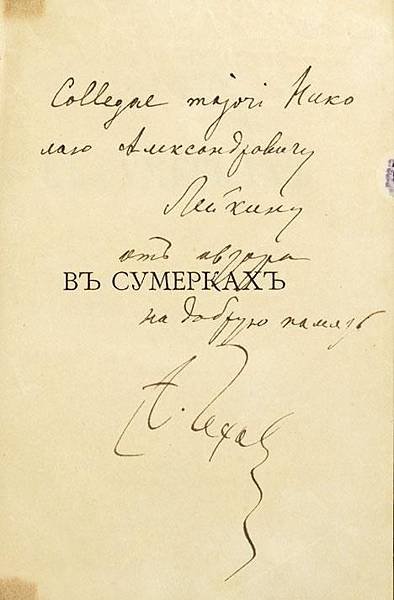 Collegae majori Нико
лаю Александровичу
Лейкину
отъ автора
ВЪ СУМЕРКАХЪ
на добрую память
А. Чехов